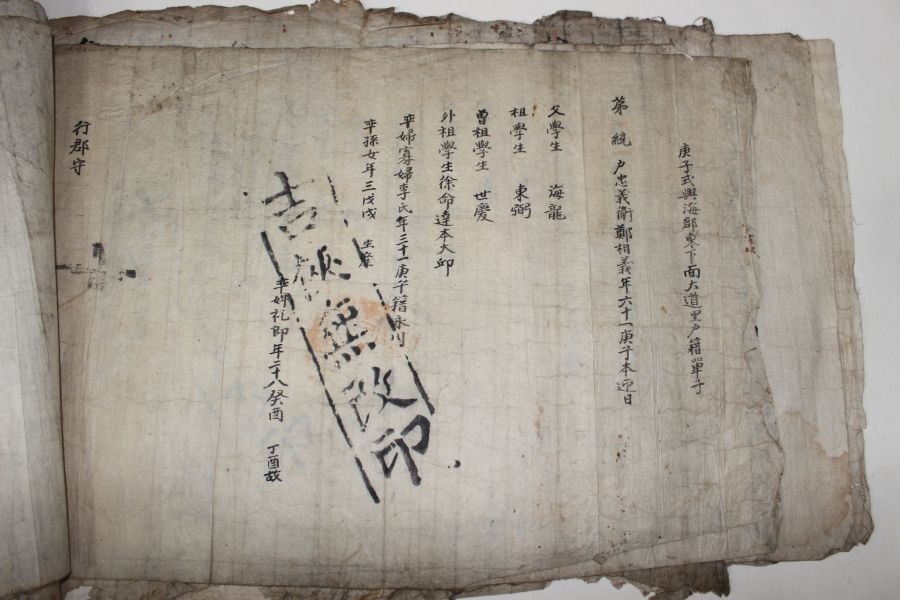 庚子式興海郡東下面大道里戶籍單子
第 統 戶忠義衛鄭相義年六十一庚子本迎日
父學生 海龍
祖學生 東弼
曾祖學生 世慶
外祖學生徐命達本大邱
率婦寡婦李氏年三十一庚午籍永川
率孫女年三戊戌 生産
率婢礼郎年二十八癸酉 丁酉故
無改印
行郡守